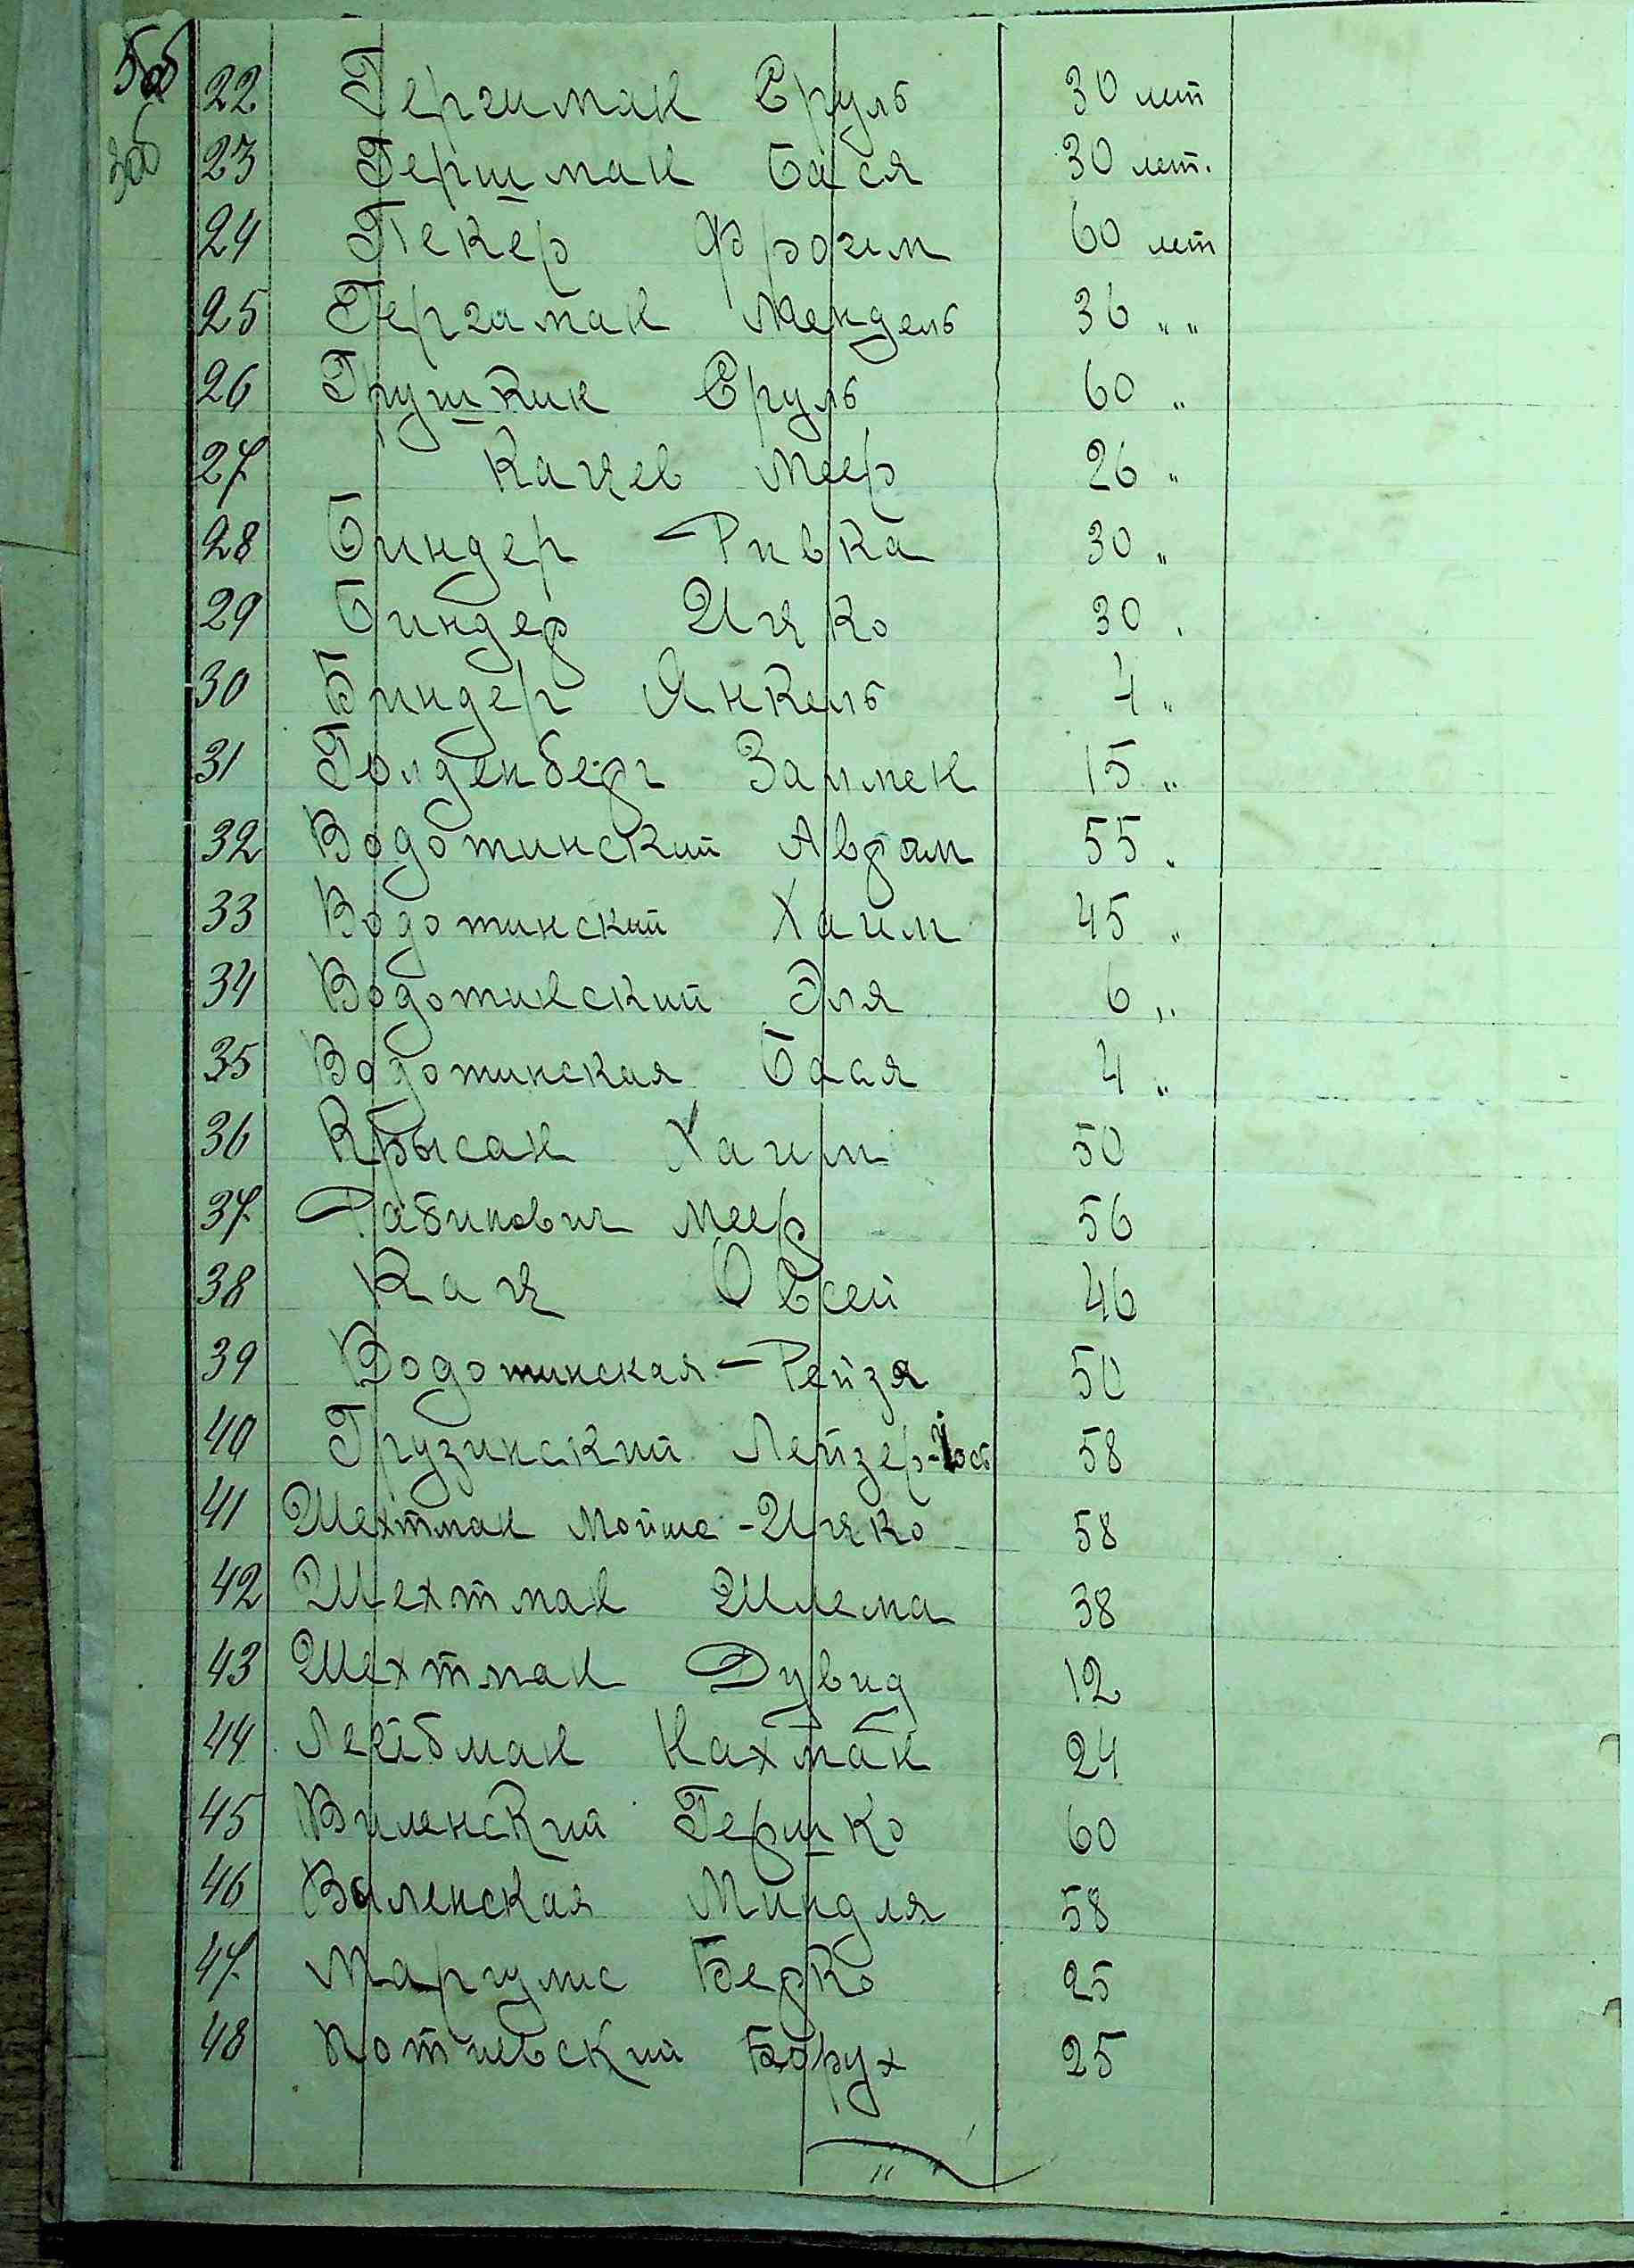 22 Герчиман Сруль 30 лет
23 Гершман Бася 30 лет.
24 Пекер Фроим 60 лет
25 Герчиман Мендель 36 " "
26 Грушкин Сруль 60 "
27 Кацев Меер 26 "
28 Биндер Ривка 30 "
29 Биндер Ицко 30 "
30 Биндер Янкель 4 "
31 Голденберг Залмен 15 "
32 Водотинский Аврам 55 "
33 Водотинский Хаим 45 "
34 Водотинский Эля 6 "
35 Водотинская Бася 4 "
36 Крысан Хаим 50
37 Рабинович Меер 56
38 Кац Овсей 46
39 Водотинская Рейзя 50
40 Грузинский Лейзер-Иось 58
41 Шехтман Мойше-Ицко 58
42 Шехтман Шлема 38
43 Шехтман Дувид 12
44 Лейбман Нахман 24
45 Виленский Гершко 60
46 Виленская Миндля 58
47 Маргулис Берко 25
48 Потиевский Борух 25